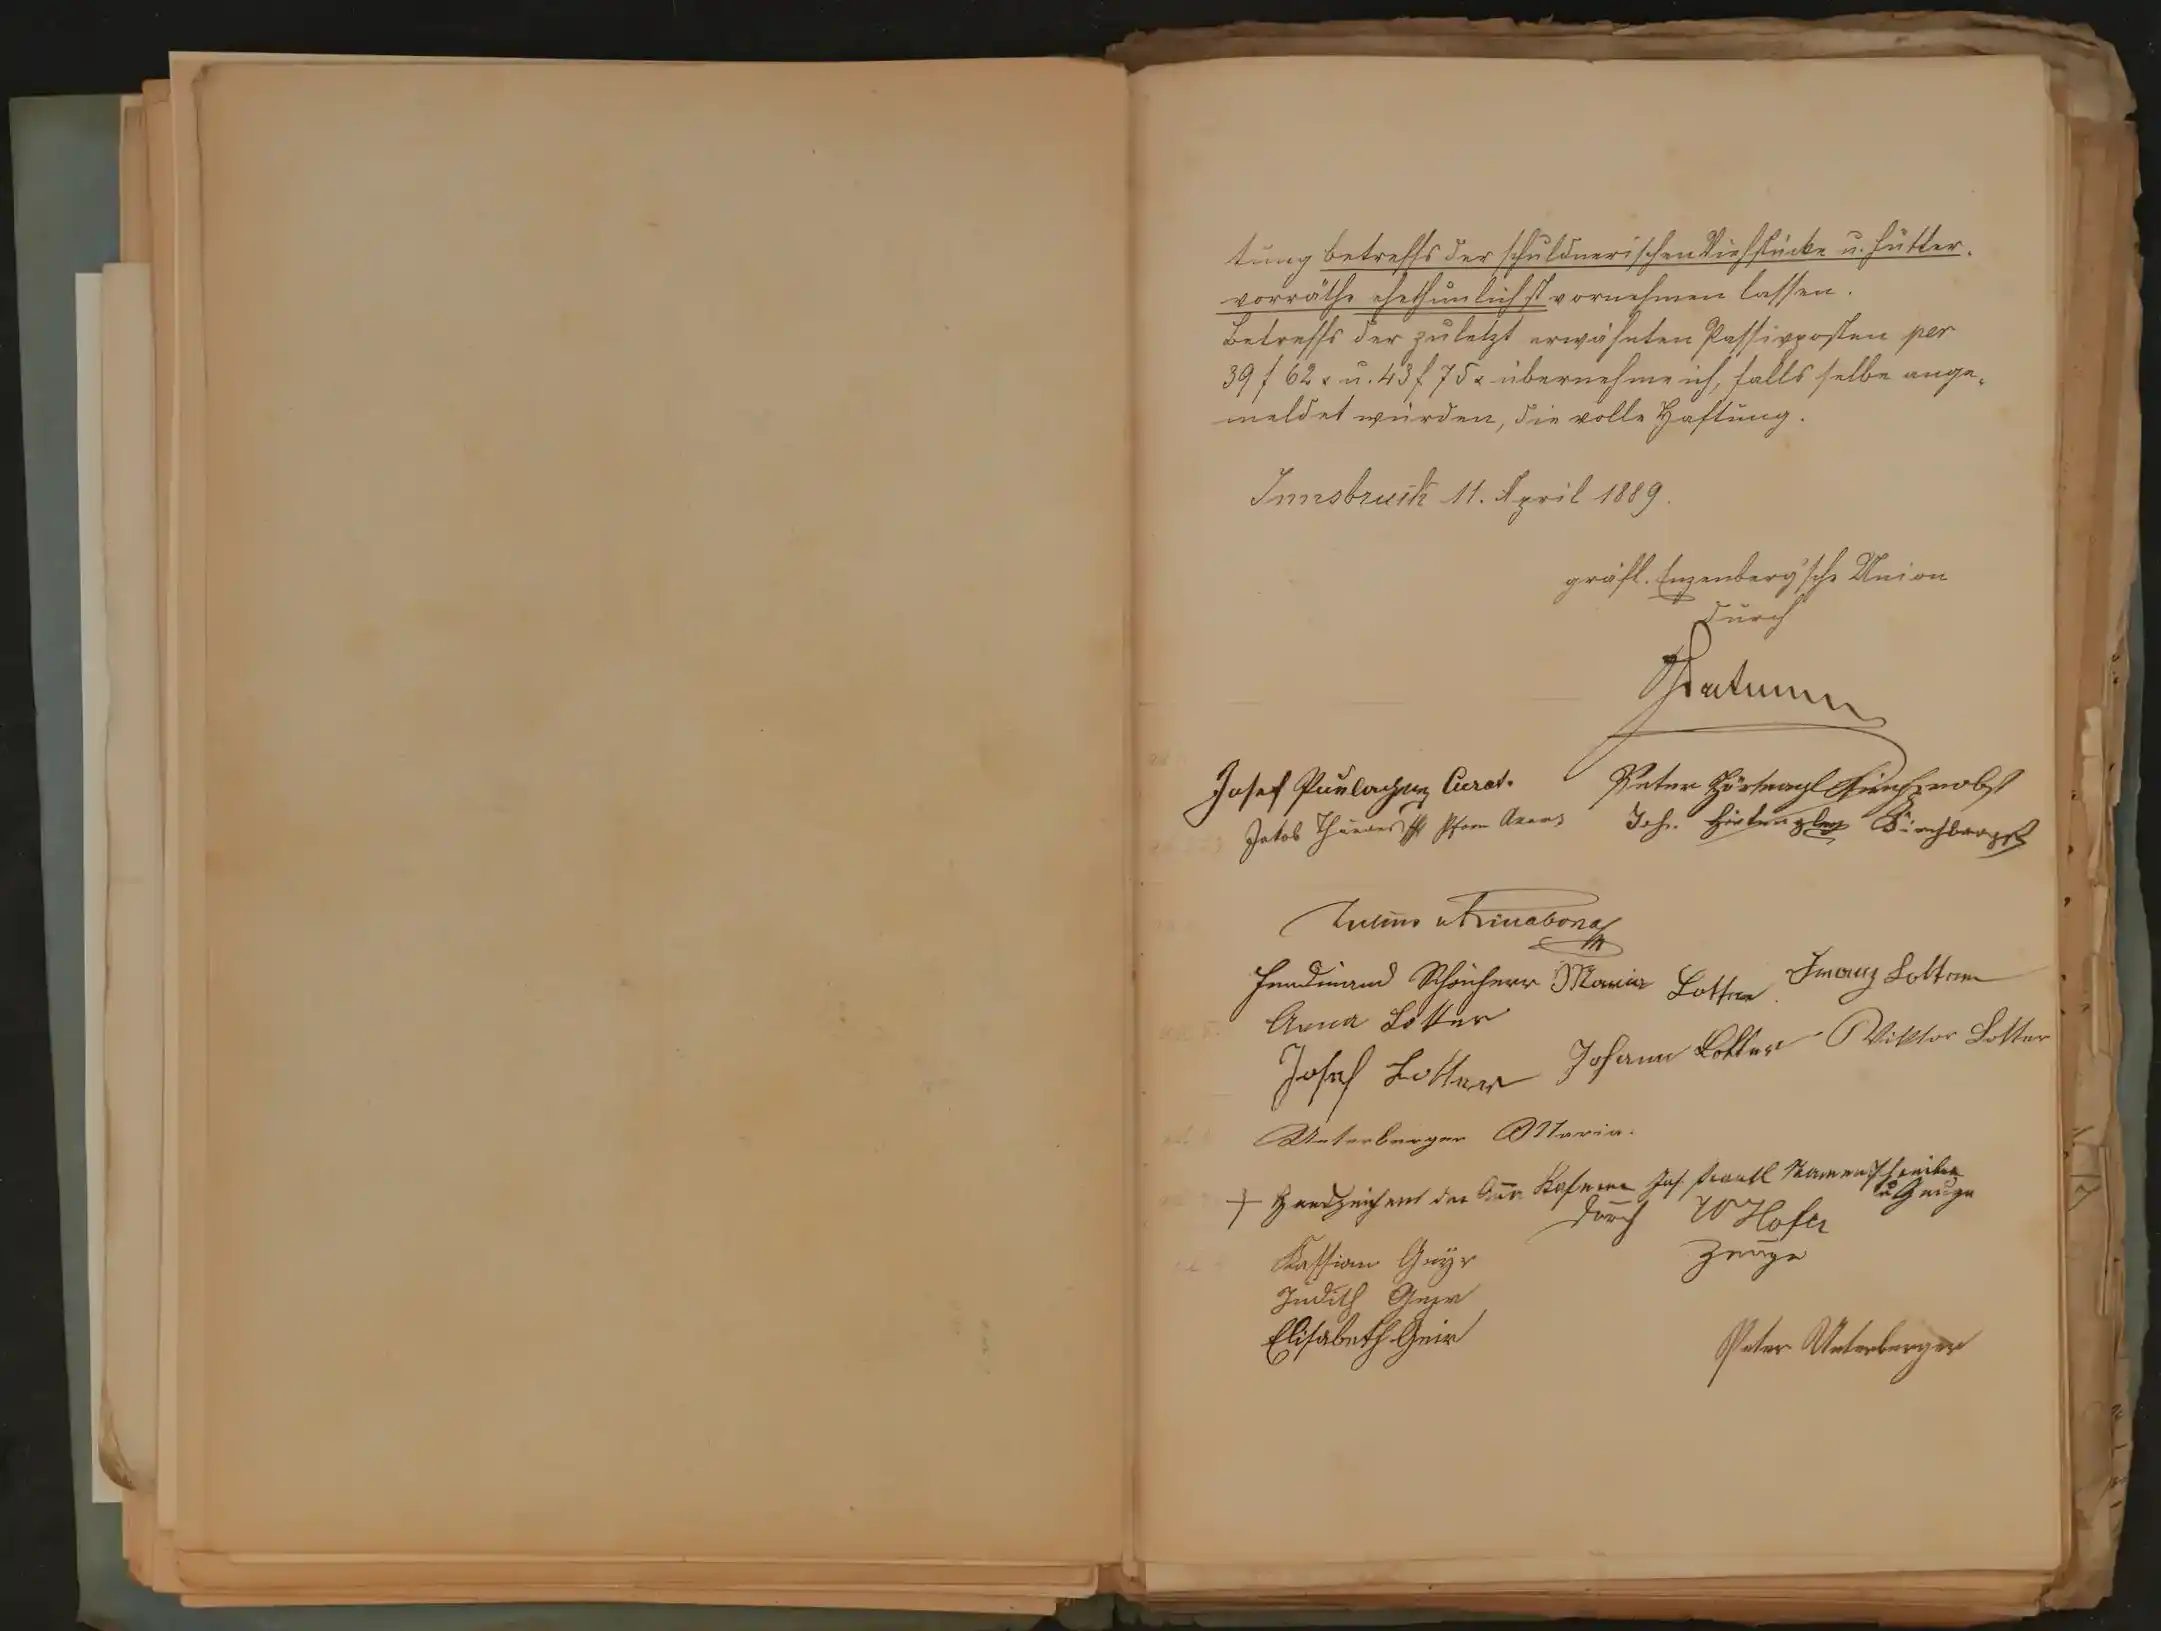 tung betreffs der schuldnerischen Viehstücke u. Futter-
vorräthe ehethunlichst vornehmen lassen.
Betreffs der zuletzt erwähnten Passivposten per
39 f 62 x u. 43 f 75 x übernehme ich, falls selbe ange-
meldet würden, die volle Haftung.
Innsbruck 11. April 1889.
gräfl. Enzenberg'sche Union
durch
Josef Curat. Peter Hörtnagl
Jakob Joh.
Julius Rinabona
Ferdinand Schönherr Maria Lotter Franz Lotter
Anna Lotter
Josef Lotter Johann Lotter Viktor Lotter
Unterberger Maria.
+ Handzeichen der Jos. Namensschreiber
u Zeuge
durch Hofer
Kassian Geyr Zeuge
Judith Geyr
Elisabeth Geir Peter Unterberger